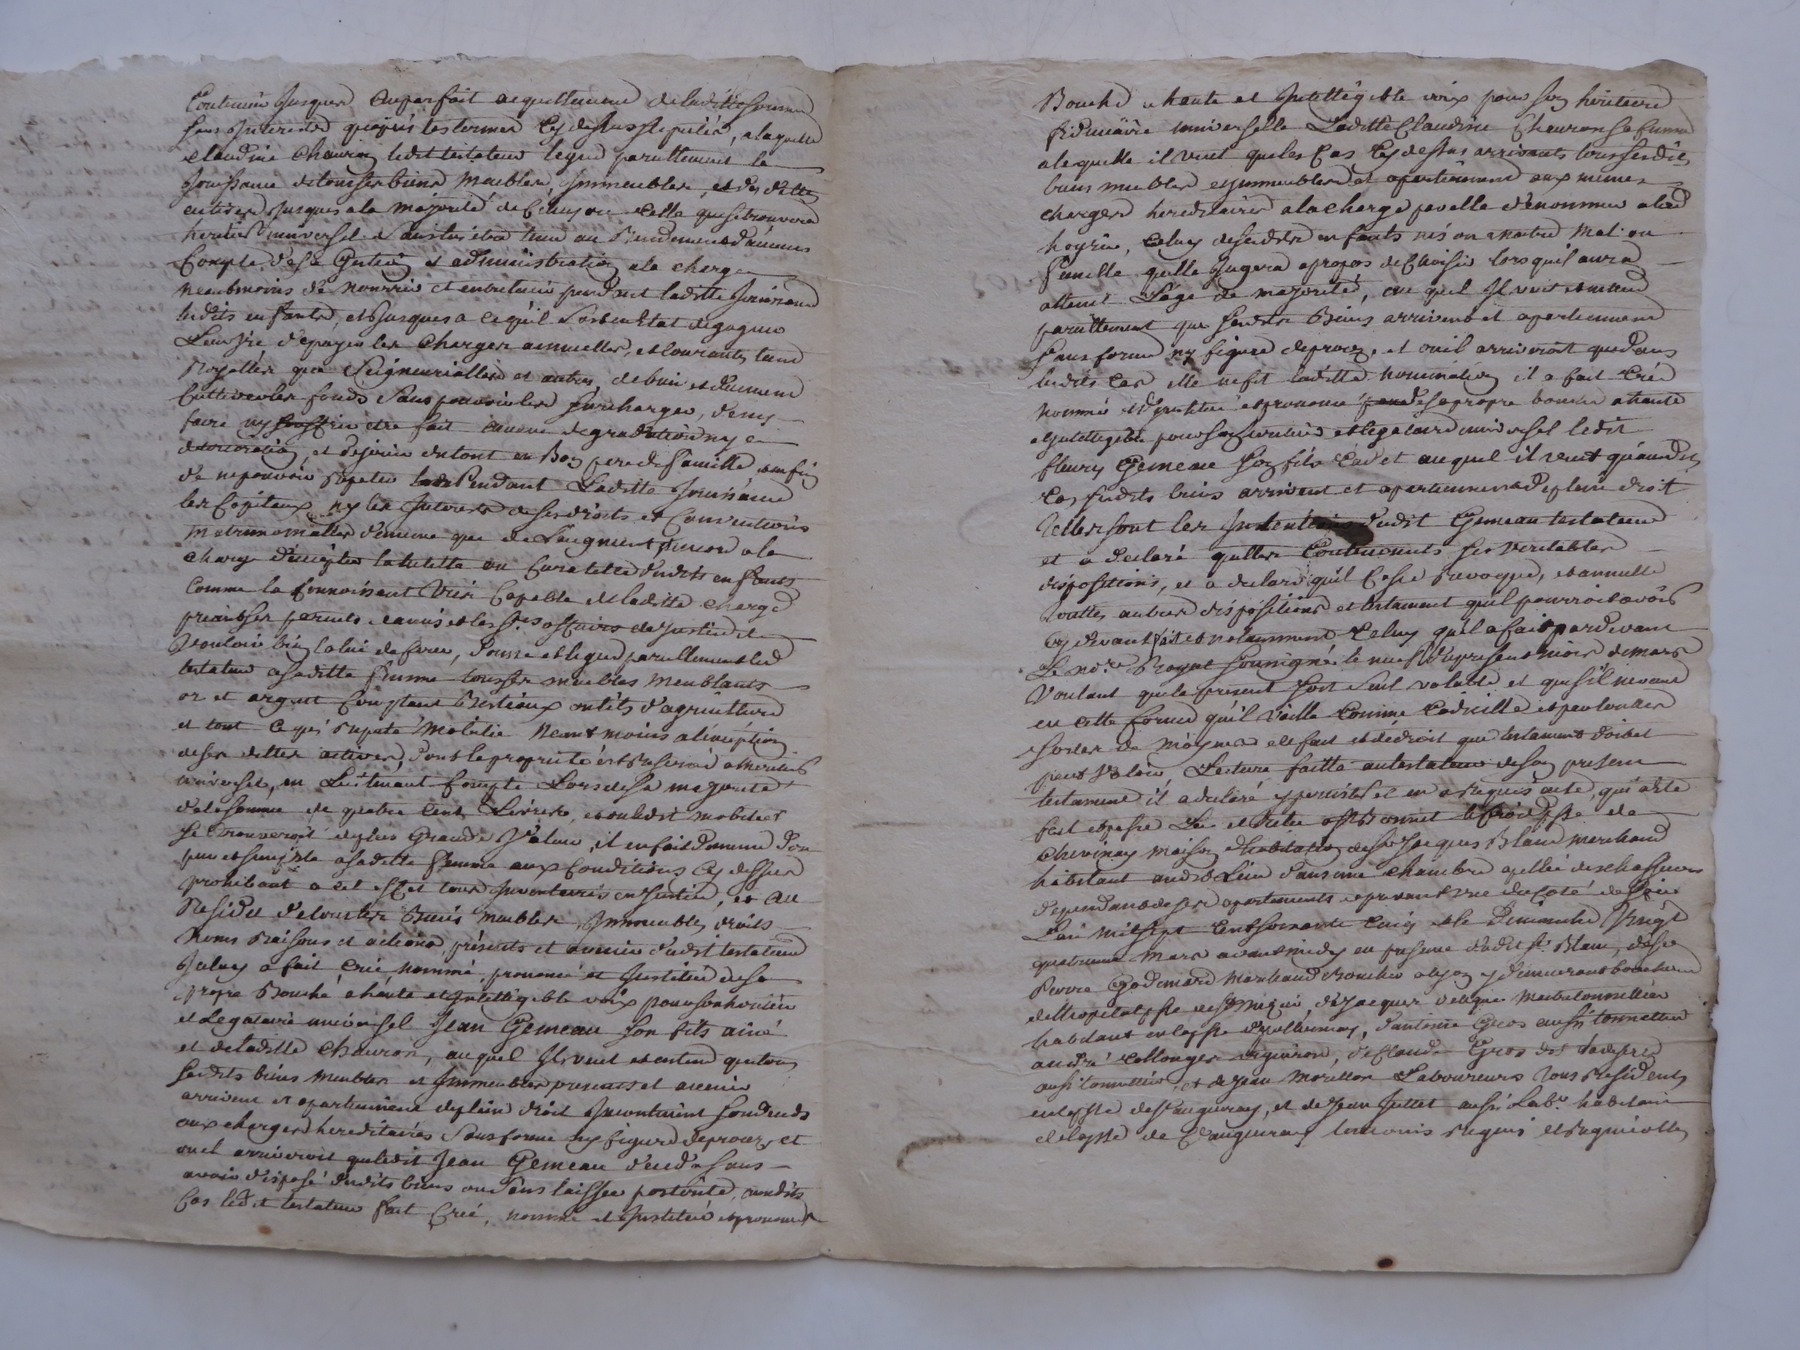 Continüer Jusques au parfait acquittement de laditte somme
sans Interests qu'après les termes cy dessus stipulés, a laquelle
Claudine Chauron ledit testateur legue pareillement la
Jouissance de tous ses biens Meubles, Immeubles, et des dettes
actives Jusques a la Majorité de celuy ou celle qui se trouvera
heritier universel sans être tenu au Rendement d'aucuns
Compte de sa Gestion et administration a la charge
neantmoins de nourrir et entretenir pendant laditte Jouissance
lesdits enfants, et Jusques a ce qu'il soient en Etat de gagner
Leur vie d'epayer les charges annuelles, et courantes tant
Royalles que Seigneurialles et autres, de bien et duement
Cultiver les fonds sans pouvoir les surcharger, d'en y
faire ny souffrir etre fait aucune degradation ny
deterioration, et d'ejouir du tout en Bon pere de famille enfin
de ne pouvoir Repeter Pendant Laditte Jouissance
les Capitaux ny les Interests de ses droits et Conventions
Matrimonialles d'meme que de L'augment encore a la
charge d'accepter la tutelle ou Curatelle desdits enfants
comme la Connoissant très Capable de laditte charge
priant ses parents et amis et les Srs officiers de Justice de
Vouloir bien la lui deferer, Donne et legue pareillement led
testateur a saditte femme tous ses meubles meublants
or et argent Comptant Bestiaux outils d'agriculture
et tout ce qui Reputé Mobilie Neantmoins a l'exception
de ses dettes actives, dont la proprieté est Reservée a l'heritier
universel, en Lui tenant Compte Lors de sa majorité
de la somme de quatre cent Livres, et ou ledit mobilier
se trouveroit de plus Grande Valeur, il en fait d'meme don
pur et simple a saditte femme aux Conditions cy dessus
prohibant a cet effet tous Inventaires en Justice, et au
Residu de tous les Biens meubles Immeubles, droits
Noms Raisons et actions, présents et avenir dudit testateur
Iceluy a fait créé nommé, prononcé et Institué de sa
propre Bouche a haute et Intelligible voix pour son heritier
et Legataire universel Jean Gemeau son fils ainé
et de laditte Chauron, auquel Il veut et entend que tous
sesdits biens meubles et Immeubles presents et avenir
arrivent et apartiennent de plein droit Incontinent son decés
aux charges hereditaires sans forme ny figure de procez, et
ou il arriveroit que ledit Jean Gemeau deceda sans
avoir disposé desdits biens ou sans laisser posterité, audits
Cas ledit testateur fait Créé, nomme et Institüe et prononce
Bouche a haute et Intelligible voix pour son heritiere
fiduciaire universelle Laditte Claudine Chauron sa femme
a laquelle il veut que les Cas cy dessus arrivants tous sesdits
biens meubles et Immeubles et apartiennent aux memes
charges hereditaires a la charge par elle d'enommer a lad
hoyrie, Celuy de sesdits enfants nés ou a naitre Mal ou
femelle qu'elle Jugera apropos de Choisir lorsqu'il aura
atteint L'age de majorité, au quel Il veut et entend
pareillement que sesdits Biens arrivent et apartiennent
sans forme ny figure de procez, et ou il arriveroit que dans
lesdits Cas elle ne fit laditte nomination il a fait Créé
nommé et Institué et prononcé de sa propre bouche a haute
et Intelligible pour son heritier et legataire universel ledit
fleury Gemeau son fils Cadet auquel il veut qu'auxdits
Cas susdits biens arrivent et apartiennent de plein droit
telles sont les Intentions dudit Gemeau testateur
et a declaré qu'elles Contiennents ses veritables
dispositions, et a declaré qu'il Casse Revoque, et annulle
touttes autres dispositions et testament qu'il pourroit avoir
cy devant fait et notamment Celuy qu'il a fait pardevant
Le nore Royal soussigné le neuf du present mois de mars
Voulant que le present soit seul valable et que s'il ne vaut
en cette forme qu'il vaille comme Codicille et par touttes
sortes de moyens de fait et de droit que testament doit et
peut valoir, Lecture faitte au testateur de son present
testament il a declaré y persister et en a Requis acte, qui a été
fait et passé Lu et Relu au Bourg et parroisse de
Chevinay maison d'habitation de Sr Jacques Blanc marchand
habitant audit Lieu dans une chambre apellée
dependante de ses apartements et prenant vüe du Coté de
L'an mil sept cent soixante cinq et le dimanche vingt
quatrieme Mars avant midy en presence dudit Sr Blanc, de Sr
Pierre Godemard Marchand Boucher a Lyon y demeurant boucherie
de l'hopital psse de St Nizier, de Jacques Maitre tonnellier
habitant en la psse de pollionnay, d'antoine Gros aussi tonnellier
andré Collonges vigneron, de Claude Gros
aussi tonnellier, et de Jean Morellon Laboureurs tous Residents
en la psse de Vaugneray, et de Jean Juttet aussi Labr habitant
de la psse de Vaugneray temoins Requis et Signé